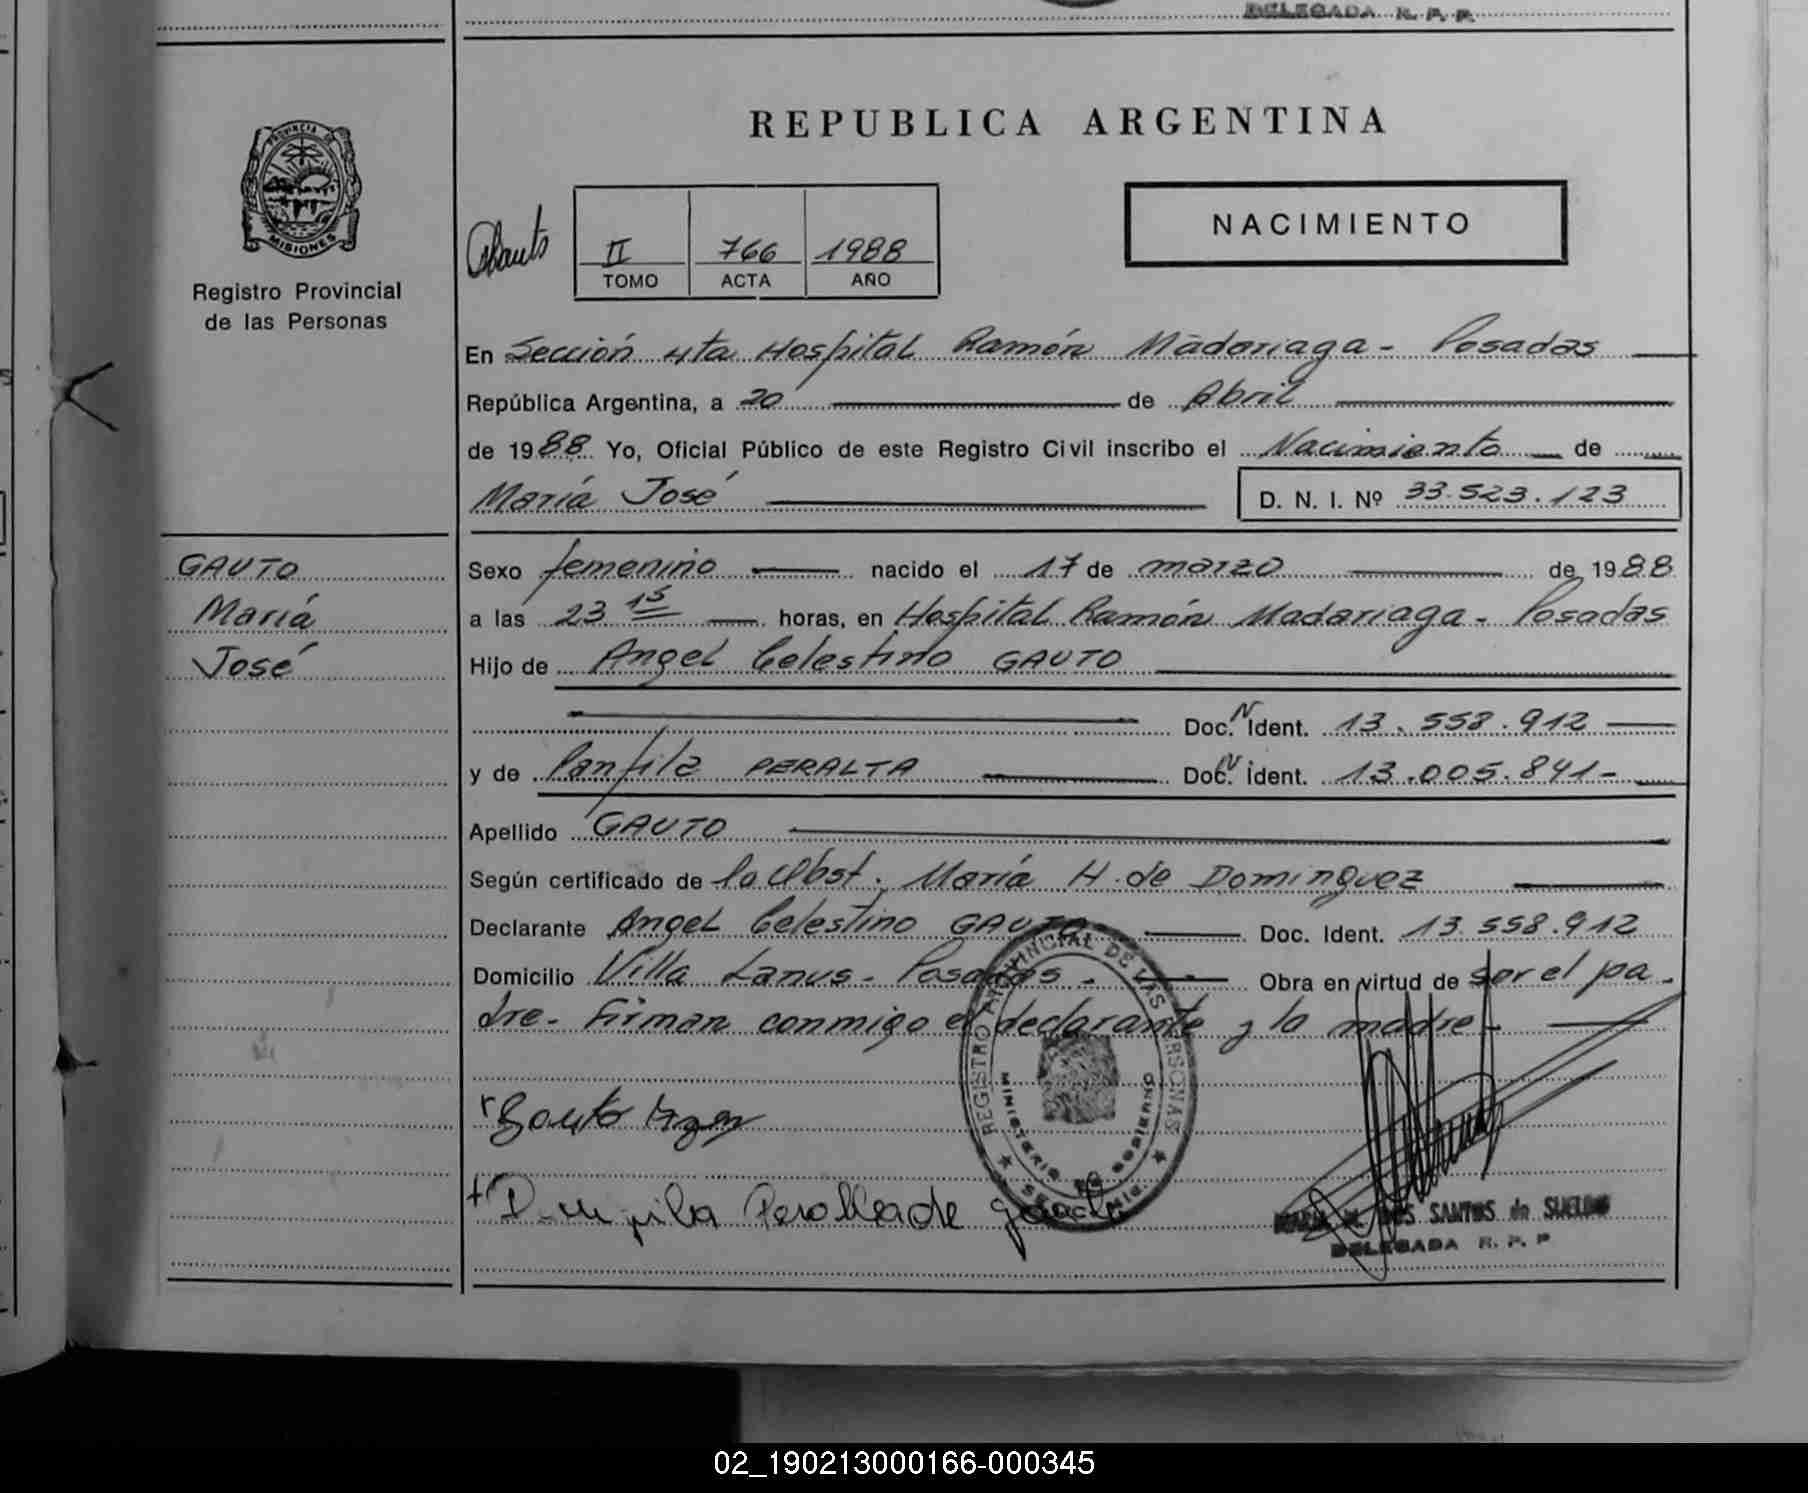 DELEGADA R. P. P.
PROVINCIA DE
MISIONES
Registro Provincial
de las Personas
REPUBLICA ARGENTINA
II 766 1988
TOMO ACTA AÑO
NACIMIENTO
En Sección 4ta Hospital Ramón Madariaga - Posadas
República Argentina, a 20 de Abril
de 1988 Yo, Oficial Público de este Registro Civil inscribo el Nacimiento de
María José D. N. I. Nº 33.523.123
GAUTO
María
José
Sexo femenino nacido el 17 de marzo de 1988
a las 23 15 horas, en Hospital Ramón Madariaga - Posadas
Hijo de Angel Celestino GAUTO
Doc. N Ident. 13.558.912
y de Panfila PERALTA Doc. N ident. 13.005.841-
Apellido GAUTO
Según certificado de la Obst. María H. de Dominguez
Declarante Angel Celestino GAUTO Doc. Ident. 13.558.912
Domicilio Villa Lanus - Posadas - Obra en virtud de ser el pa-
dre - Firman conmigo el declarante y la madre -
REGISTRO PROVINCIAL DE LAS PERSONAS
MINISTERIO DE GOBIERNO
Gauto
Peralta de
DOS SANTOS de SUELDO
DELEGADA R. P. P
02_190213000166-000345